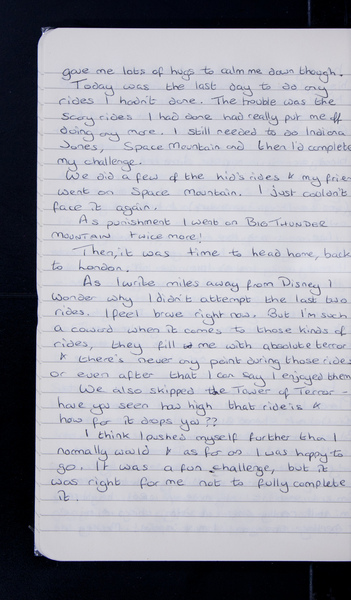 gave me lots of hugs to calm me down though.
Today was the last day to do any
rides I hadn't done. The trouble was the
scary rides I had done had really put me off
doing any more. I still needed to do Indiana
Jones, Space Mountain and then I'd complete
my challenge.
We did a few of the kid's rides & my frien
went on Space Mountain. I just couldn't
face it again.
As punishment I went on BIG THUNDER
MOUNTAIN twice more!
Then, it was time to head home, back
to London.
As I write miles away from Disney I
wonder why I didn't attempt the last two
rides. I feel brave right now. But I'm such
a coward when it comes to those kinds of
rides, they fill me with absolute terror
& there's never any point during those rides
or even after that I can say I enjoyed them
We also skipped the Tower of Terror -
have you seen how high that ride is &
how far it drops you??
I think I pushed myself further than I
normally would & as far as I was happy to
go. It was a fun challenge, but it
was right for me not to fully complete
it.